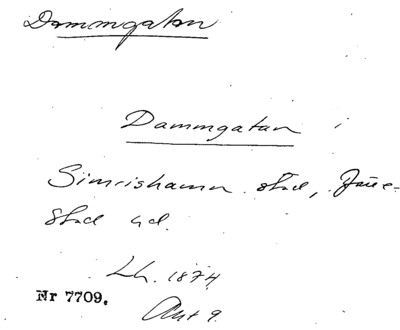 Dammgatan
Dammgatan i
Simrishamn stad, Järre-
stad hd.
Lh. 1874
Akt 9.
Nr 7709.